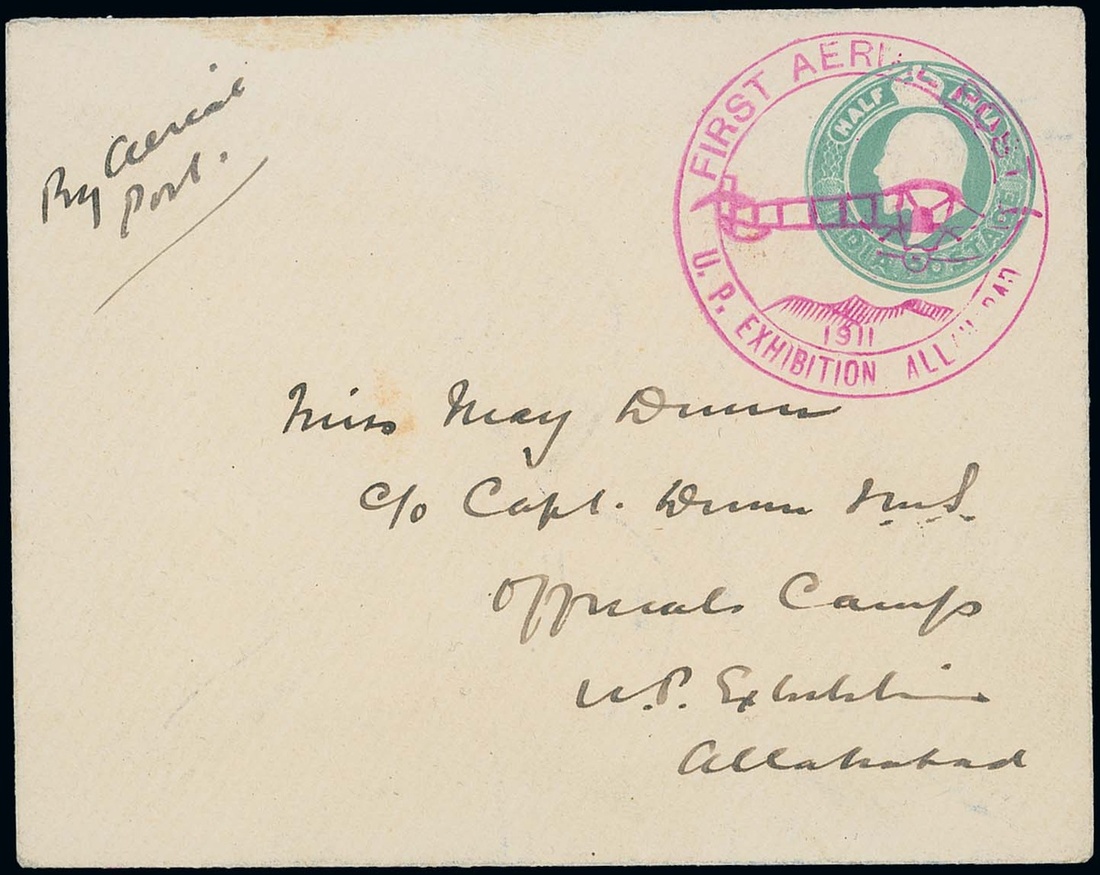 By Aerial
Post.
FIRST AERIAL POST
U. P. EXHIBITION ALLAHABAD
1911
HALF ANNA
INDIA POSTAGE
Miss May Dunn
c/o Capt. Dunn I.M.S.
Officials Camp
U.P. Exhibition
Allahabad